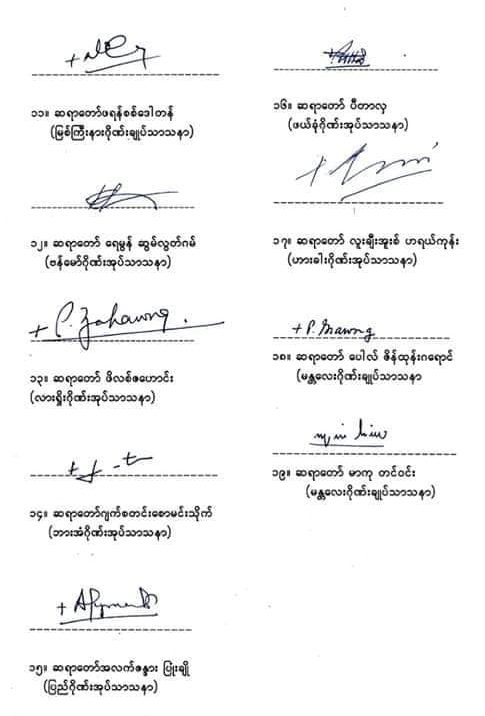 ၁၁။ ဆရာတော်ဖရန်စစ်ဒေါတန်
(မြစ်ကြီးနားဂိုဏ်းချုပ်သာသနာ)
၁၂။ ဆရာတော် ရေမွန် ဆွမ်လွတ်ဂမ်
(ဗန်မော်ဂိုဏ်းအုပ်သာသနာ)
+ P. Zahawng.
၁၃။ ဆရာတော် ဖိလစ်ဇဟောင်း
(လားရှိုးဂိုဏ်းအုပ်သာသနာ)
၁၄။ ဆရာတော်ဂျက်စတင်းစောမင်းသိုက်
(ဘားအံဂိုဏ်းအုပ်သာသနာ)
၁၅။ ဆရာတော်အလက်ဇန္ဒား ပြုံးချို
(ပြည်ဂိုဏ်းအုပ်သာသနာ)
၁၆။ ဆရာတော် ပီတာလှ
(ဖယ်ခုံဂိုဏ်းအုပ်သာသနာ)
၁၇။ ဆရာတော် လူးချီးအူးစ် ဟရယ်ကုန်း
(ဟားခါးဂိုဏ်းအုပ်သာသနာ)
+ P. Grawng
၁၈။ ဆရာတော် ပေါလ် ဇိန်ထုန်းဂရောင်
(မန္တလေးဂိုဏ်းချုပ်သာသနာ
၁၉။ ဆရာတော် မာကု တင်ဝင်း
(မန္တလေးဂိုဏ်းချုပ်သာသနာ)